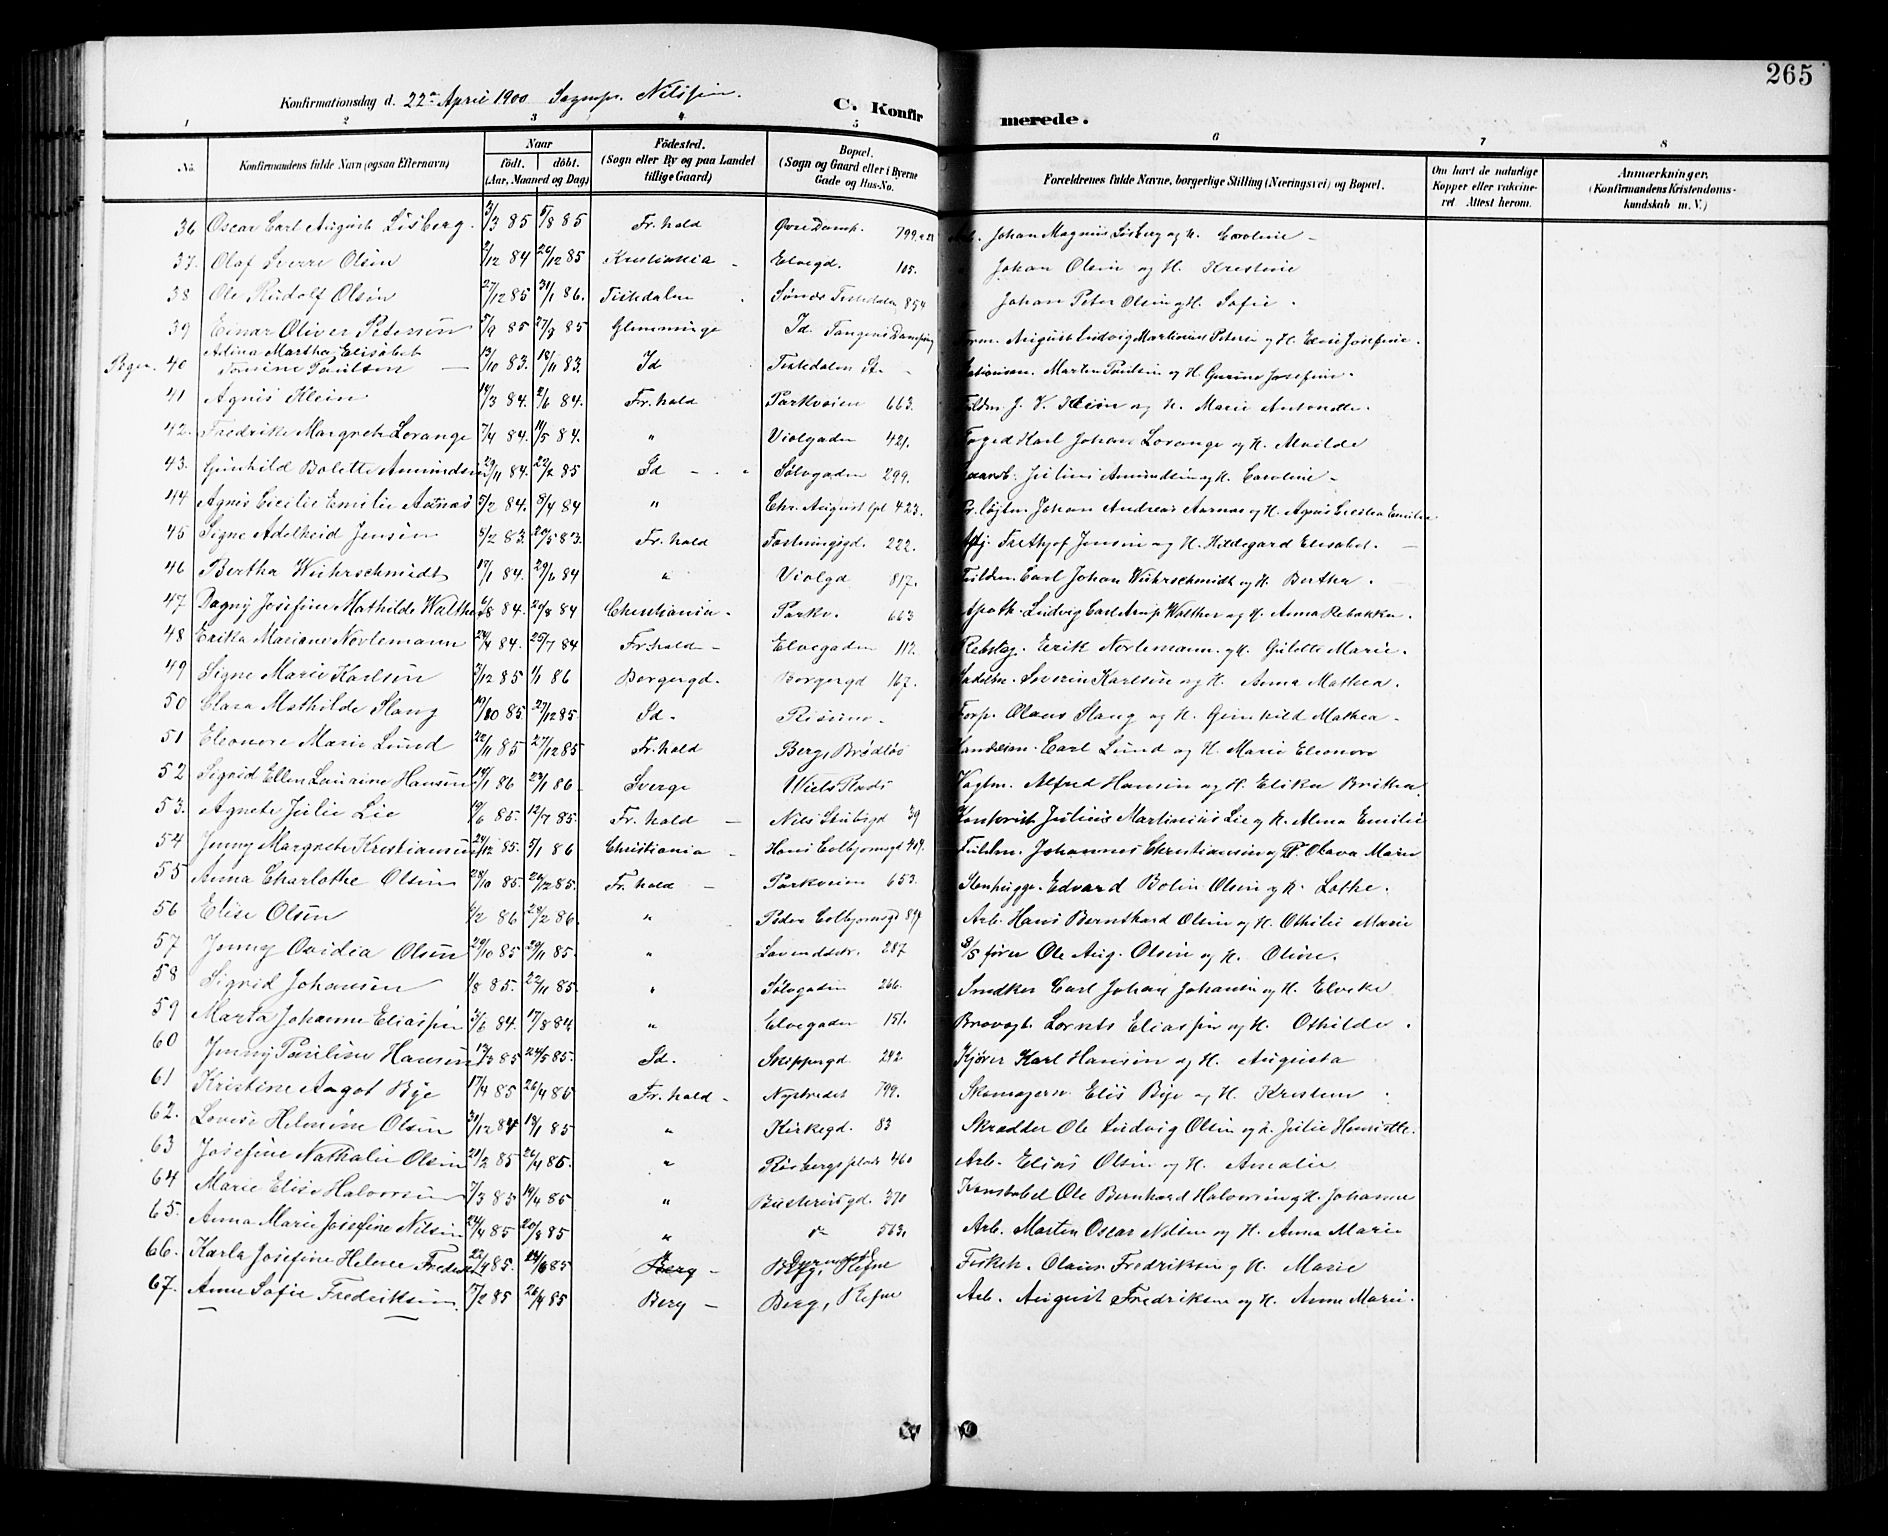 265
Konfirmationsdag d. 22de April 1900 Sognepr. Nilssen.
C. Konfirmerede.
1 2 3 4 5 6 7 8
No. Konfirmandens fulde Navn (ogsaa Efternavn) Naar födt. döbt. (Aar, Maaned og Dag) Födested. (Sogn eller By og paa Landet tillige Gaard) Bopæl. (Sogn og Gaard eller i Byerne Gade og Hus-No. Forældrenes fulde Navne, borgerlige Stilling (Næringsvei) og Bopæl. Om havt de naturlige Kopper eller vakcineret. Attest herom. Anmærkninger. (Konfirmandens Kristendomskundskab m. V.)
36 Oscar Carl August Lisberg. 3/3 85 85 Fr.hald Øvre Damh. 799 Arb. Johan Magnus Lisberg og H. Caroline
37. Olaf Sverre Olsen 2/12 84 22/12 85 Kristiania Elvegd. 105. Johan Olsen og H. Kristine
38 Ole Rudolf Olsen 27/12 85 31/1 86. Tistedalen Søndre Tistedalen 854 Johan Peter Olsen og H. Sofie
39 Einar Oliver Petersen 5/9 85 85 Glemminge Id. Tangens Dampsag Form. August Ludvig Martinius Petersen og H. Elise Josefine.
40 Adina Martha Elisabet Pouline Poulsen 13/10 83. 18/11 83. Id Tistedalen St. Stationsm. Martin Poulsen og H. Gurine Josefine.
41 Agnes Klein 19/3 84. 2/6 84. Fr.hald Parkveien 663. Fuldm. J. V. Klein og H. Marie Antonette.
42. Fredrikke Margrethe Lorange 7/4 84. 14/5 84. " Violgaden 421. Foged Karl Johan Lorange og H. Alvilde
43. Gunhild Bolette Amundsen 29/11 84. 22/2 85 Id " Sølvgaden 299. Gaardb. Julius Amundsen og H. Caroline
44 Agnes Cecilie Emilie Aarnæs 5/2 84. 8/4 84 " Chr. August Gd. 423. Pr.løjtn. Johan Andreas Aarnæs og H. Agnes Cecilia Emilie
45 Signe Adelheid Jensen 5/2 83. 20/5 83. Fr.hald Fæstningsgd. 222. Frithjof Jensen og H. Hildegard Elisabet.
46 Bertha Wuhrschmidt 17/1 84. 29/6 84 " Violgd 817. Fuldm. Carl Johan Wuhrschmidt og H. Bertha.
47 Dagny Josefine Mathilde Walther 6/8 84. 24/8 84 Christiania Parkv. 663 Apoth. Ludvig Carl Arup Walther og H. Anna Rebekka.
48 Erika Mariane Norlemann 24/4 84. 25/7 84 Fr.hald Elvegaden 112. Rebslag. Erik Norlemann. og H. Gulette Marie.
49 Signe Marie Karlsen 3/12 85 1/1 86 Borgergd. Borgergd 167. Sadelm. Severin Karlsen og H. Anna Mathea.
50 Clara Mathilde Stang 19/10 85. 27/12 85. Id. Risum. Forp. Olaus Stang og H. Gunhild Mathea
51 Eleonore Marie Lund 22/11 85 27/12 85 Fr.hald Berg, Brødløs Handelsm. Carl Lund og H. Marie Eleonore
52 Sigrid Ellen Laurine Hansen 19/1 86 24/1 86 Sverge Wiels Plads Vagtm. Alfred Hansen og H. Elika Britha
53. Agnete Julie Lie 19/6 85. 12/7 85. Fr.hald Nils Stubsgd 39 Kontorist Julius Martinius Lie og H. Alma Emilie
54 Jenny Margrete Kristiansen 24/12 85. 5/1 86 Christiania Hans Colbjørnsgd 404. Fuldm. Johannes Christiansen og H. Olava Marie
55 Anna Charlothe Olsen 28/10 85. 26/12 85. Fr.hald Parkveien 653. Stenhugger Edvard Bolin Olsen og H. Lothe.
56 Elise Olsen 6/2 86 28/2 86. " Peder Colbjørnsgd 847 Arb. Hans Bernthard Olsen og H. Othilie Marie
57 Jenny Ovidia Olsen 20/10 85 29/11 85. " Lavendelstr. 287 S/S fører Ole Aug. Olsen og H. Oline.
58 Sigrid Johansen 1/8 85. 22/11 85. " Sølvgaden 266. Snedker Carl Johan Johansen og H. Elveke
59 Marta Johanne Eliassen 3/6 84. 17/8 84 " Elvegaden 151. Brovogt. Lornts Eliassen og H. Othilde.
60 Jenny Pauline Hansen 12/3 85 24/5 85. Id. Skippergd. 242. Kjører Karl Hansen og H. Augusta
61 Kristine Aagot Bye 17/4 85 26/4 85 Fr.hald Nystredet 799. Skomagersv. Elis Bye og H. Kristine
62. Lovise Helmine Olsen 31/12 84 18/1 85 " Kirkegd. 83 Skrædder Ole Ludvig Olsen og H. Julie Henriette.
63 Josefine Nathalie Olsen 20/2 85 26/4 85. " Rosbergs plads 460 Arb. Elias Olsen og H. Amalie
64 Marie Elise Halvorsen 7/3 85 19/4 85 " Busteriisgd. 370 Konstabel Ole Bernhard Halvorsen og H. Johanne
65. Anna Marie Josefine Nilsen 24/4 85 20/8 85 " do 563. Arb. Martin Oscar Nilsen og H. Anna Marie
66. Karla Josefine Helene Fredriksen 22/4 85. 14/6 85 Berg Berg, Refne Fiskeh. Olaus Fredriksen og H. Marie
67. Anne Sofie Fredriksen 17/2 85 26/4 85 Berg Berg, Refne Arb. August Fredriksen og H. Anne Marie.